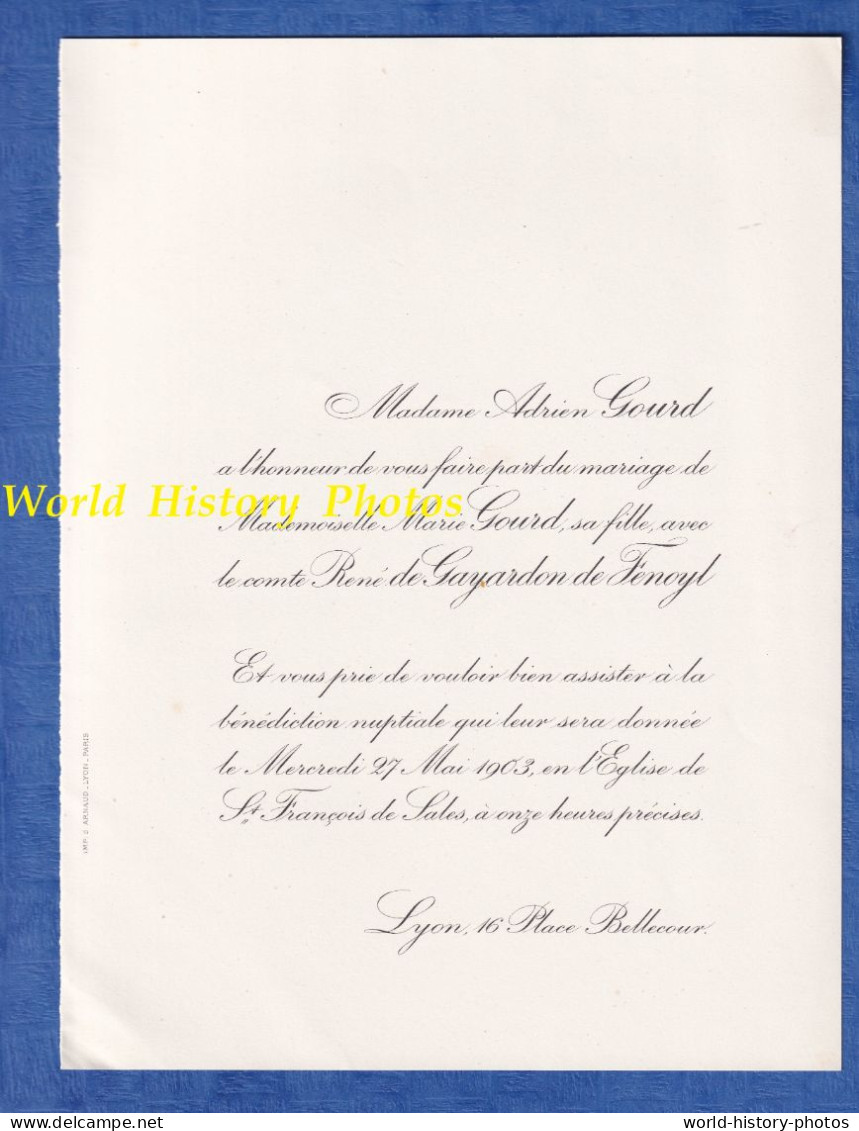 Madame Adrien Gourd
a l'honneur de vous faire part du mariage de
World History Photos
Mademoiselle Marie Gourd, sa fille, avec
le comte René de Gayardon de Fenoyl
Et vous prie de vouloir bien assister à la
bénédiction nuptiale qui leur sera donnée
le Mercredi 27 Mai 1903, en l'Eglise de
St François de Sales, à onze heures précises.
Lyon, 16 Place Bellecour.
IMP. J. ARNAUD_LYON_PARIS
delcampe.net
world-history-photos